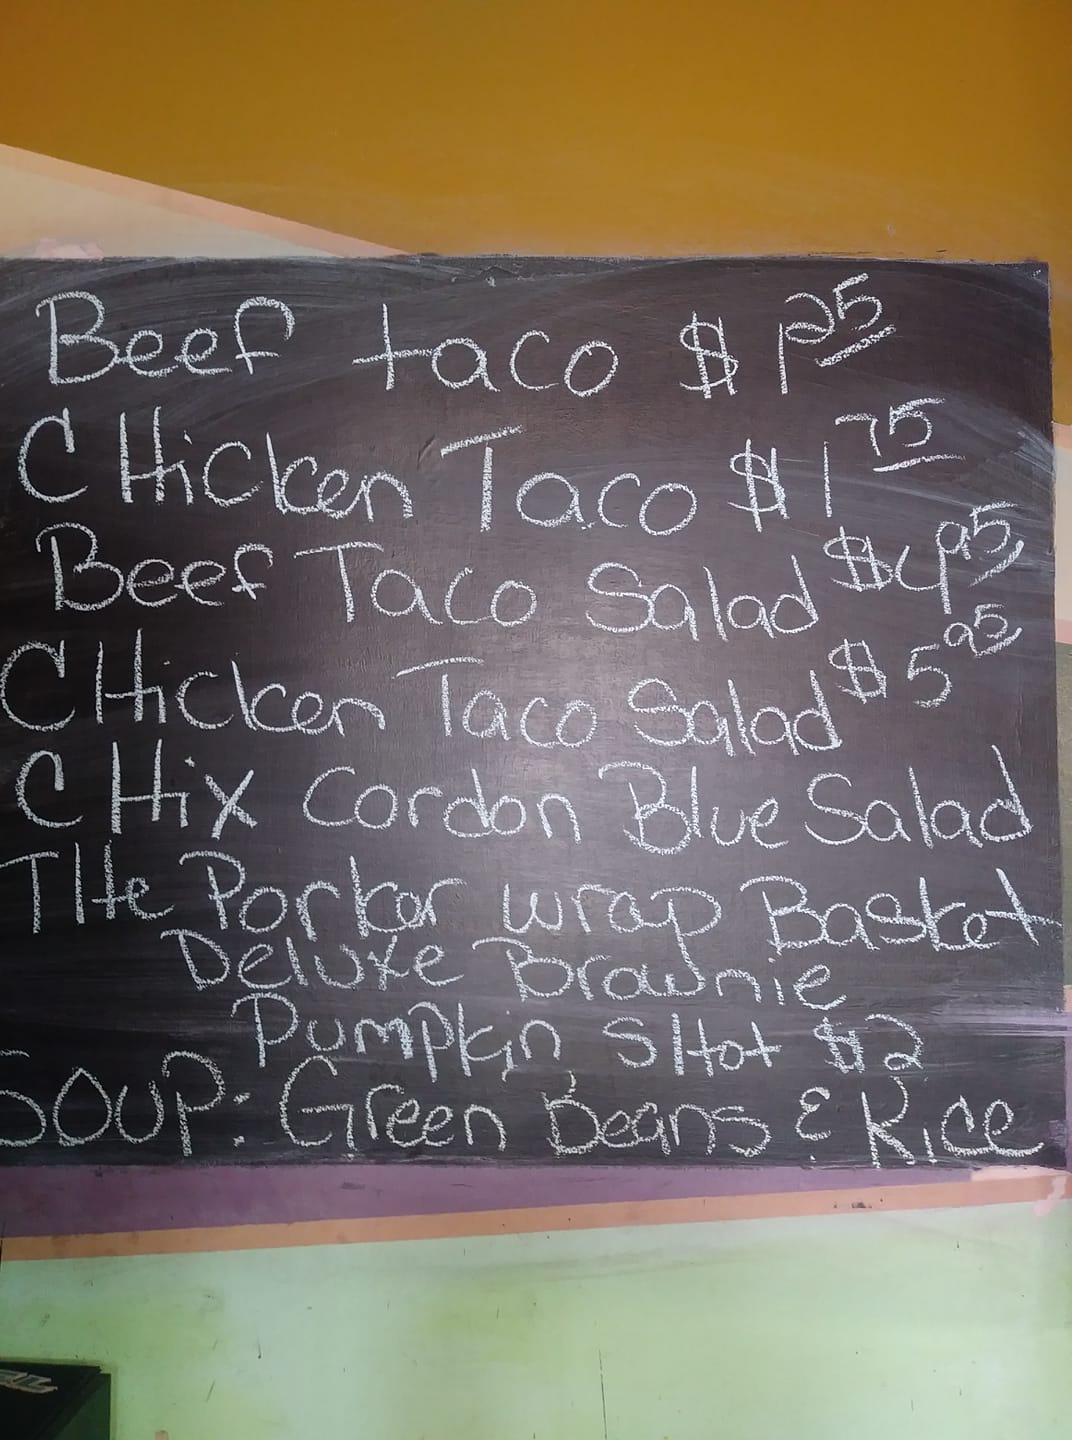 Beef taco $1.25
CHicken Taco $1.75
Beef Taco Salad $4.95
CHicken Taco Salad $5.95
CHix Cordon Blue Salad
THe Porker wrap Basket
Deluxe Brownie
Pumpkin SHot $2
SOUP: Green Beans & Rice